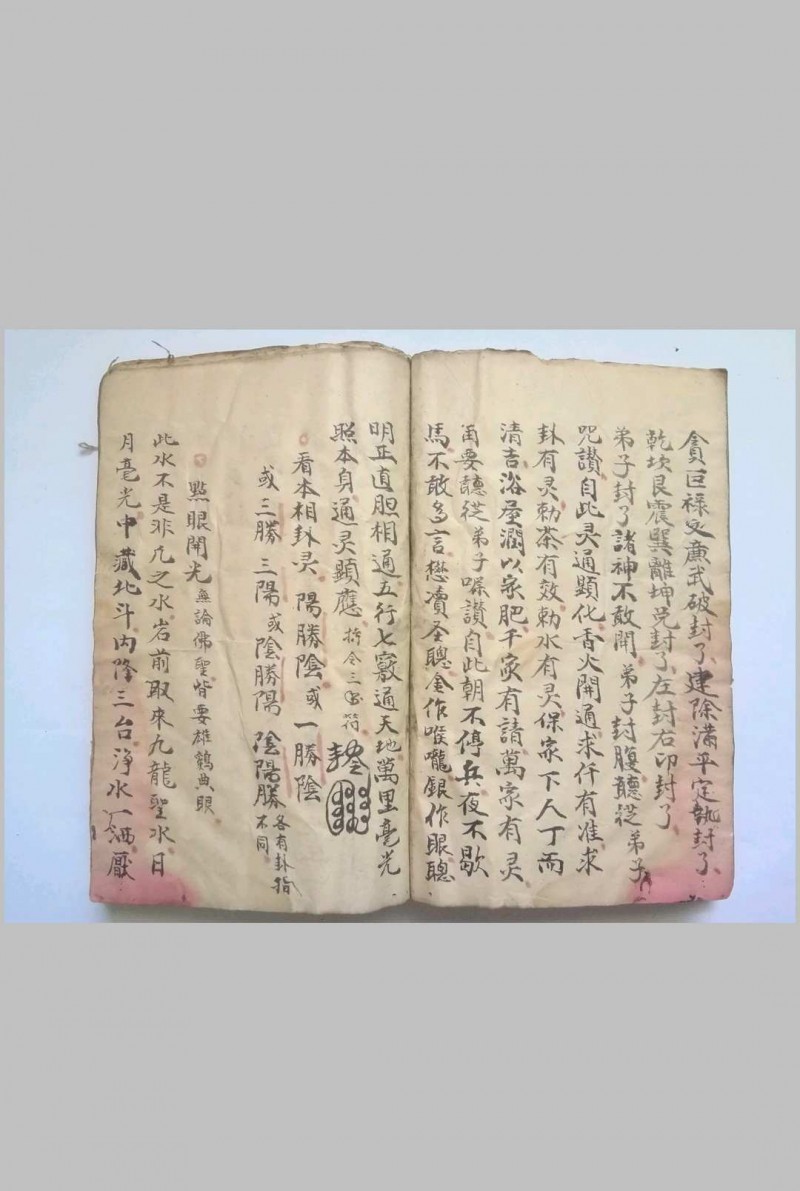 貪巨祿文廉武破封了建除满平定執封了
乾坎艮震巽離坤兌封了左封右印封了
弟子封了諸神不敢開弟子封腹聽從弟子
咒讃自此灵通顕化香火開通求仟有准求
卦有灵勅茶有效勅水有灵保家下人丁而
清吉浴屋潤以家肥千家有請萬家有灵
甬要聽從弟子嘱讃自此朝不停兵夜不歇
馬不敢多言懋凟圣聰金作喉嚨銀作眼聰
明正直胆相通五行七竅通天地萬里毫光
照本身通灵顕應 符令三 符
看本相卦灵 陽勝陰或一勝陰
或三勝三陽或陰勝陽 陰陽勝各有卦指不同
點眼開光 無論佛聖皆要雄鶴典眼
此水不是非凢之水岩前取來九龍聖水日
月毫光中藏北斗内隆三台淨水一洒厭